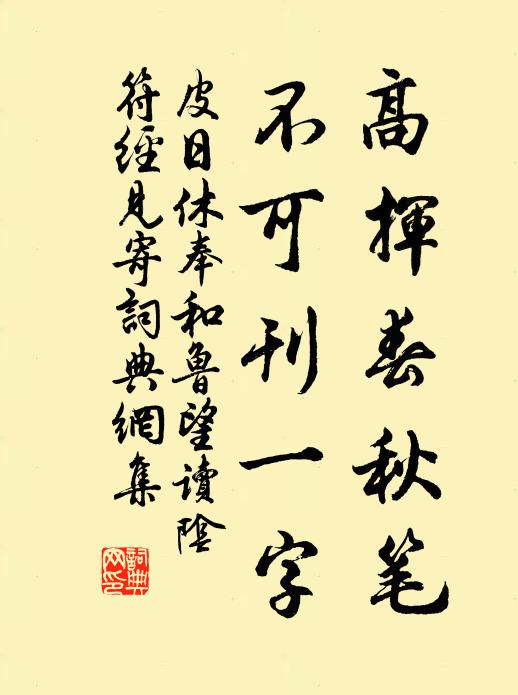 高揮春秋笔
不可刊一字
皮日休奉和魯望讀陰
符經見寄詞典網集
詞典
网印